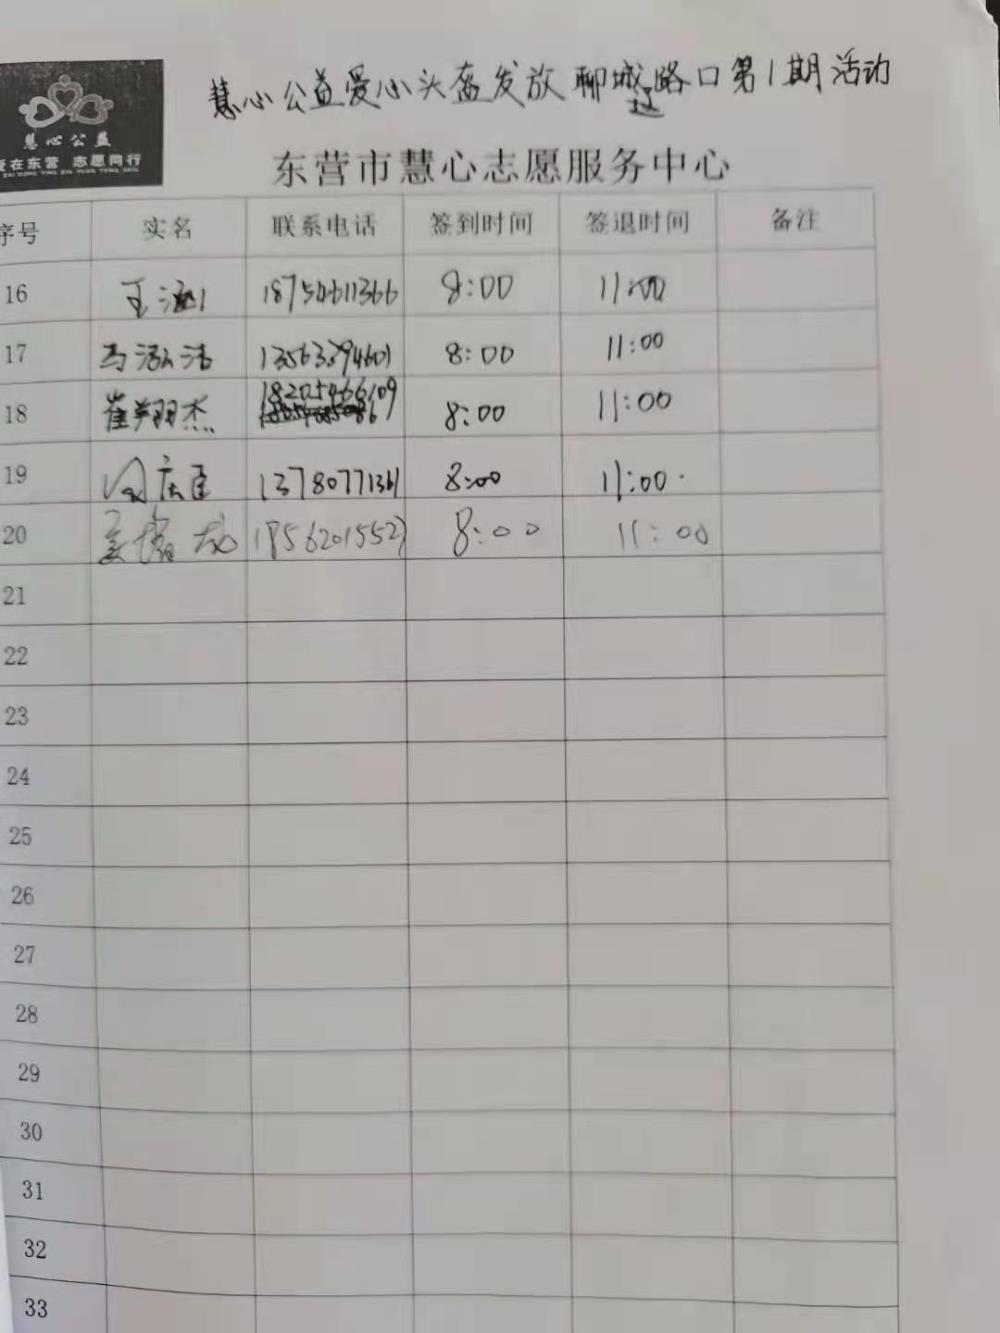 慧心公益爱心头盔发放聊城路口第1期活动
慧心公益
爱在东营 志愿同行
东营市慧心志愿服务中心
序号 实名 联系电话 签到时间 签退时间 备注
16 王涵 8:00 11:00
17 马泓洁 8:00 11:00
18 崔翔杰 18205466109 8:00 11:00
19 13780771361 8:00 11:00
20 姜 龙 18562015527 8:00 11:00
21
22
23
24
25
26
27
28
29
30
31
32
33